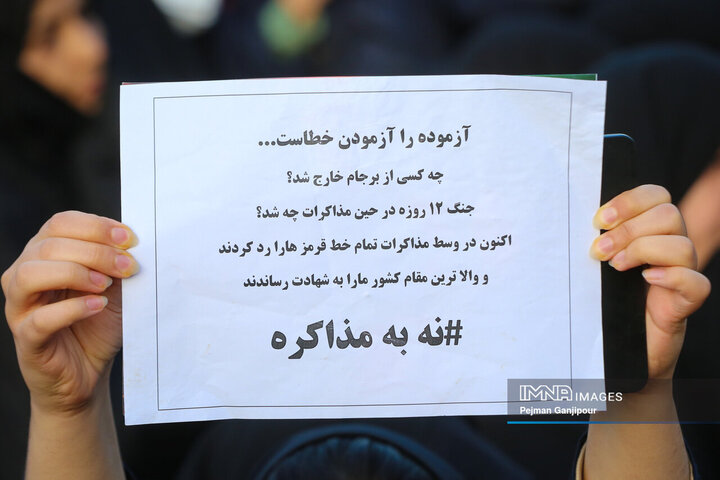 آزموده را آزمودن خطاست...
چه کسی از برجام خارج شد؟
جنگ ۱۲ روزه در حین مذاکرات چه شد؟
اکنون در وسط مذاکرات تمام خط قرمز هارا رد کردند
و والا ترین مقام کشور مارا به شهادت رساندند
#نه به مذاکره
IMNA IMAGES
Pejman Ganjipour